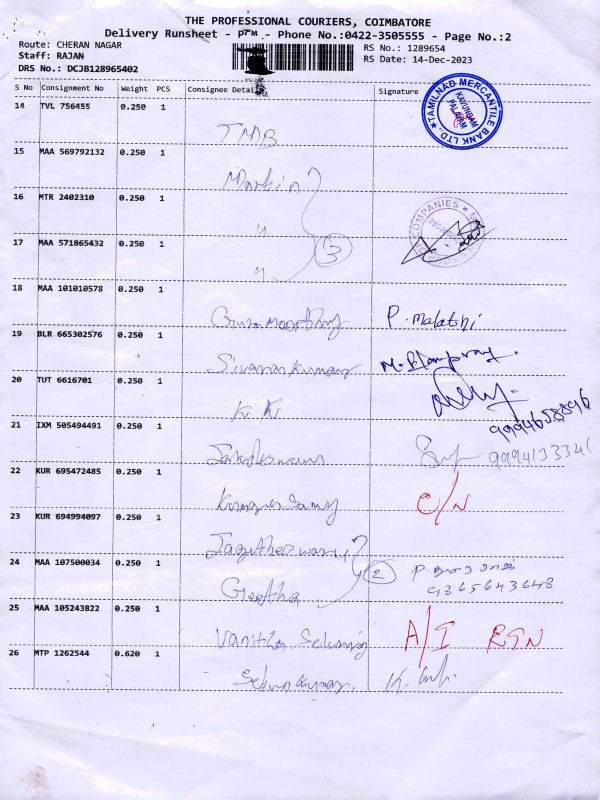 THE PROFESSIONAL COURIERS, COIMBATORE
Delivery Runsheet - PTM - Phone No.:0422-3505555 - Page No.:2
Route: CHERAN NAGAR RS No.: 1289654
Staff: RAJAN RS Date: 14-Dec-2023
DRS No.: DCJB128965402
S No Consignment No Weight PCS Consignee Details Signature
14 TVL 756455 0.250 1 TMB
TAMILNAD MERCANTILE BANK LTD.,
KAVUNDAM
PALAYAM
15 MAA 569792132 0.250 1 Martin
16 MTR 2402310 0.250 1 "
COMPANIES
17 MAA 571865432 0.250 1 "
3
18 MAA 101010578 0.250 1 Gurumoorthy P. Malathi
19 BLR 665302576 0.250 1 Sivaran kumar
20 TUT 6616701 0.250 1 K. K.
9994658896
21 IXM 505494491 0.250 1
9994133341
22 KUR 695472485 0.250 1 C/N
23 KUR 694994097 0.250 1
24 MAA 107500034 0.250 1 Geetha 2
9365643648
25 MAA 105243822 0.250 1 Vanitha A/I RTN
26 MTP 1262544 0.620 1 Selvakumar K.